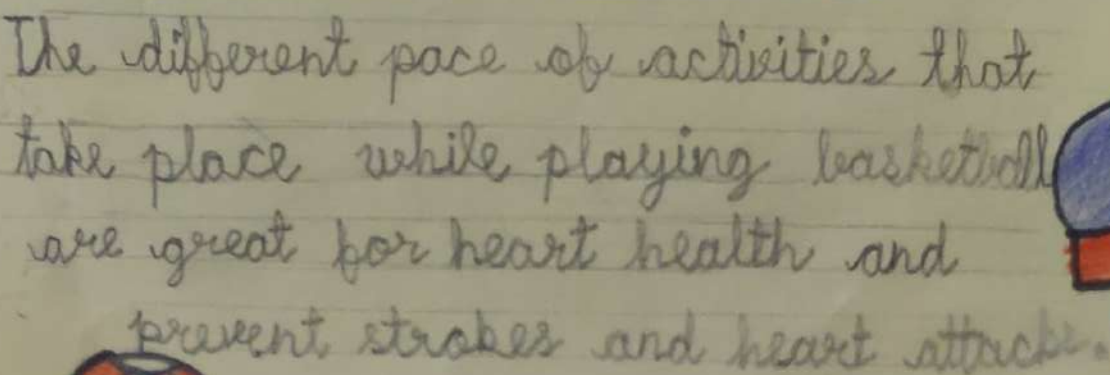 The different pace of activities that
take place while playing basketball
are great for heart health and
prevent strokes and heart attacks.